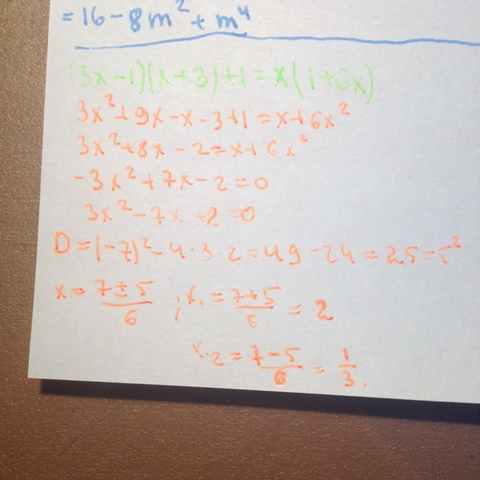 = 16 - 8m² + m⁴
(3x-1)(x+3)+1=x(1+6x)
3x²+9x-x-3+1=x+6x²
3x²+8x-2=x+6x²
-3x²+7x-2=0
3x²-7x+2=0
D=(-7)²-4·3·2=49-24=25=5²
x=7±5/6 ; x₁=7+5/6=2
x₂=7-5/6=1/3.